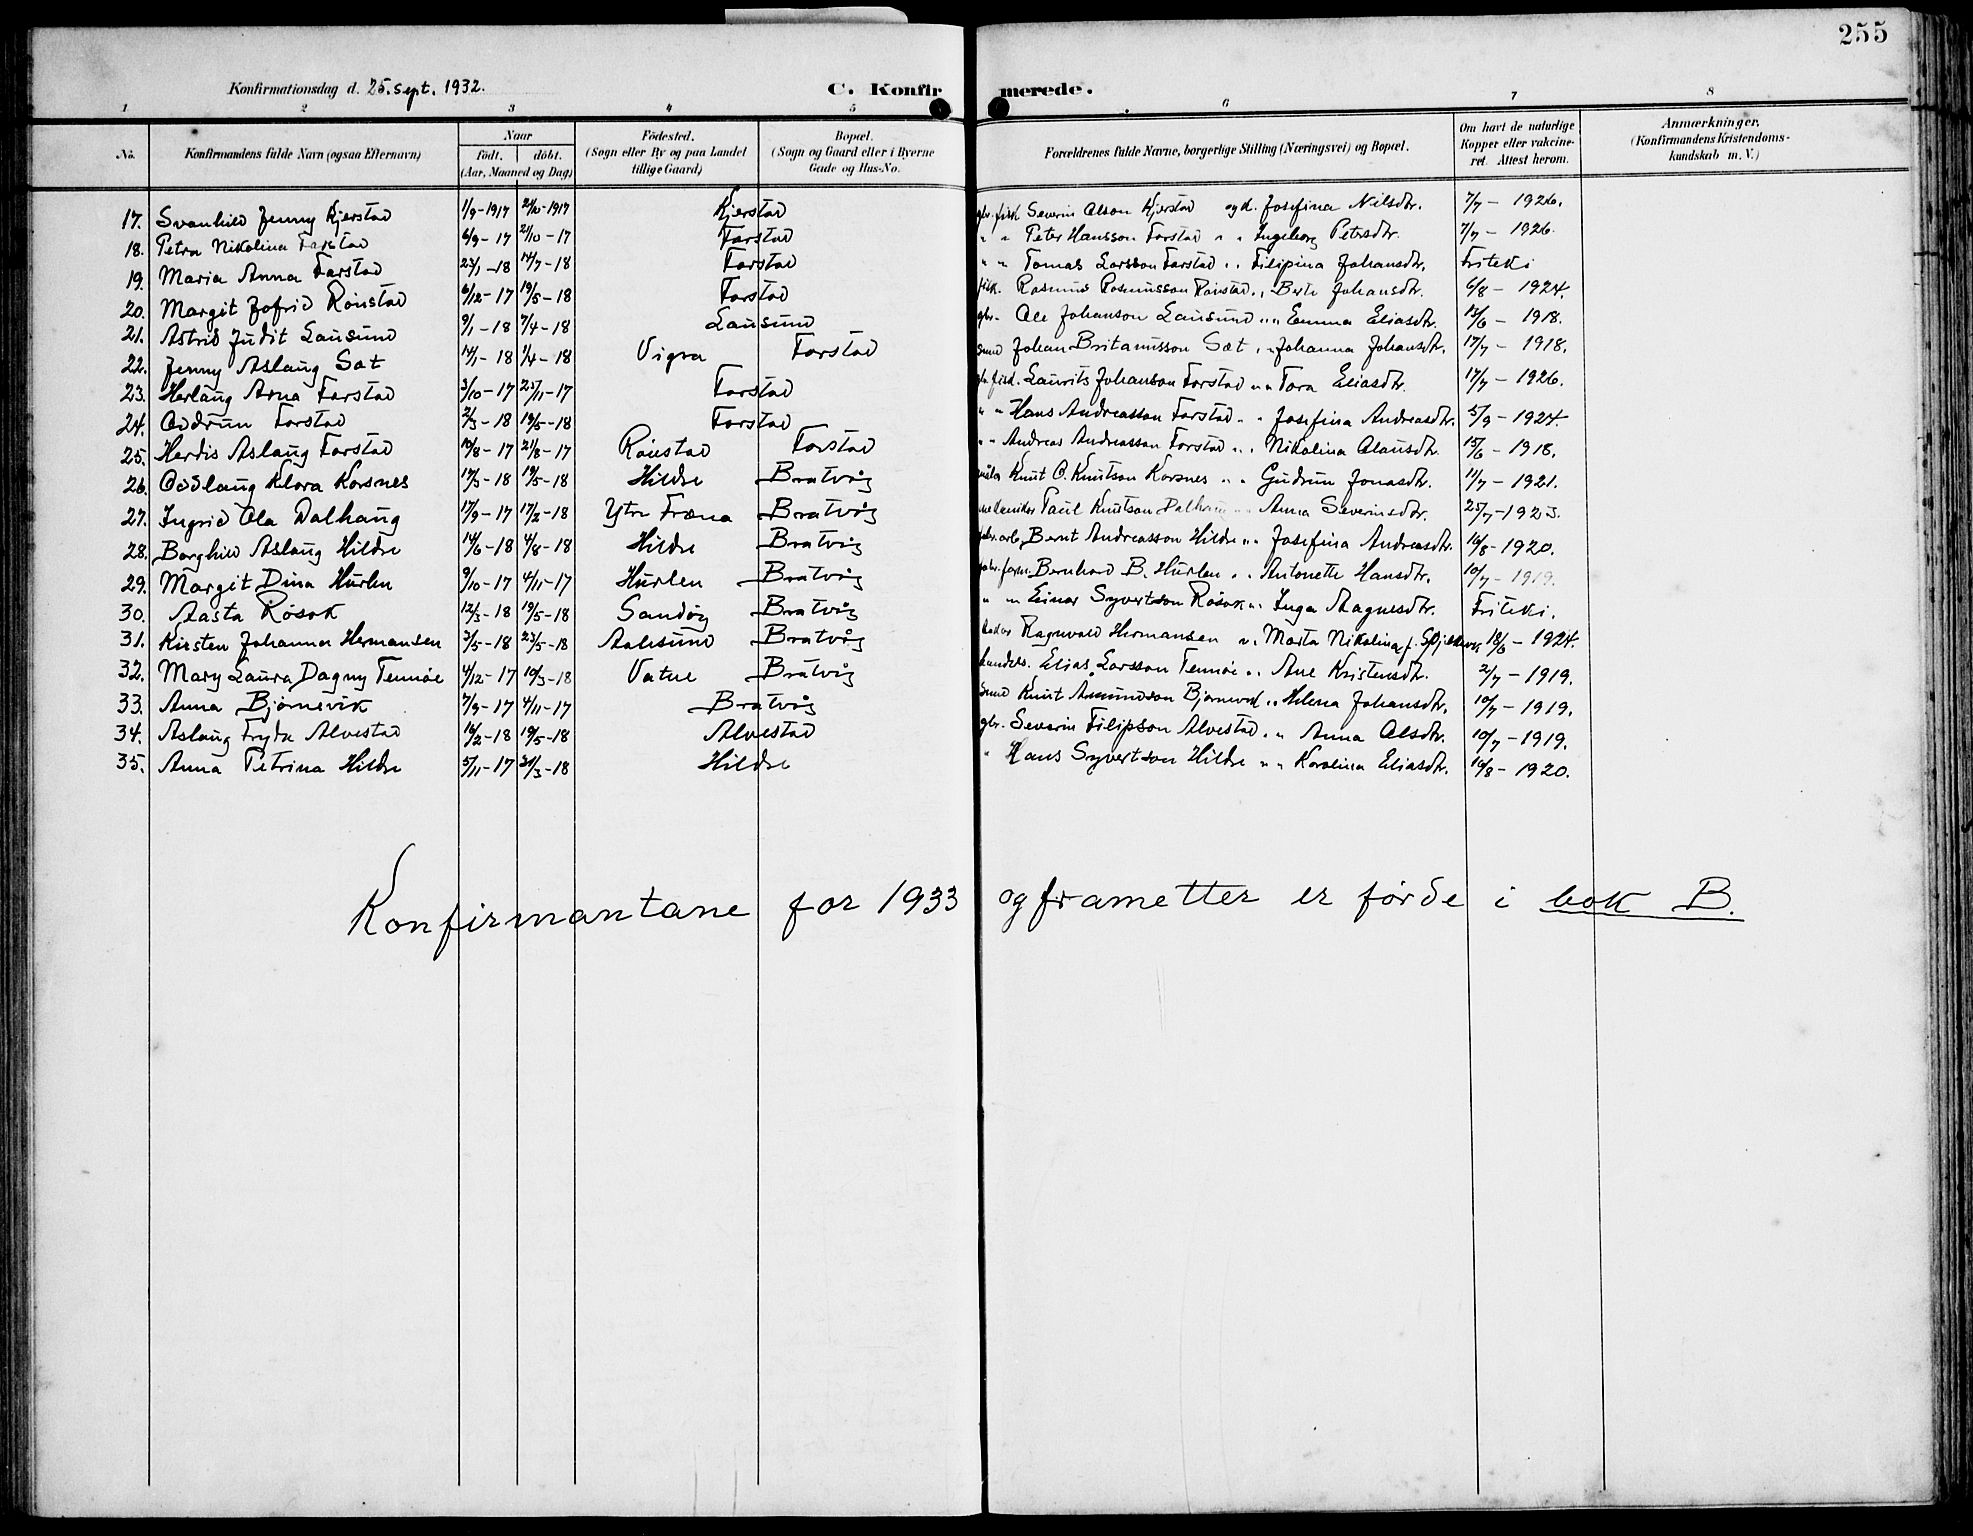 255
Konfirmationsdag d. 25. sept. 1932.
C. Konfirmerede.
1 2 3 4 5 6 7 8
No. Konfirmandens fulde Navn (ogsaa Efternavn) Naar födt. döbt. (Aar, Maaned og Dag) Födested. (Sogn eller By og paa Landet tillige Gaard) Bopæl. (Sogn og Gaard eller i Byerne Gade og Hus-No. Forældrenes fulde Navne, borgerlige Stilling (Næringsvei) og Bopæl. Om havt de naturlige Kopper eller vakcineret. Attest herom. Anmærkninger. (Konfirmandens Kristendomskundskab m. V.)
17. Svanhild Jenny Kjerstad 1/9-1917 Kjerstad gbr. fisk Severin Olson Kjerstad og k. Josefina Nilsdtr. 7/7 - 1926.
18. Petra Nikolina Farstad 6/9-17 21/10-17 Farstad " " Peter Hansson Farstad " " Ingeborg Petersdtr. 7/7 - 1926.
19. Maria Anna Farstad 23/1-18 14/7-18 Farstad " " Tomas Larsson Farstad " " Filipina Johansdtr. Friteki
20. Margit Jofrid Rönstad 6/12-17 19/5-18 Farstad fisk. Rasmus Rasmusson Rönstad " Berte Johansdtr. 6/8 - 1924.
21. Astrid Judit Lausund 9/1-18 7/4-18 Lausund gbr. Ole Johanson Lausund " " Emma Eliasdtr. 15/6 - 1918.
22. Jenny Aslaug Sæt 14/1-18 1/4-18 Vigra Farstad smed Johan Britanusson Sæt " Johanna Johansdtr. 17/7 - 1918.
23. Herlaug Arna Farstad 3/10-17 25/11-17 Farstad gbr. fisk. Laurits Johanson Farstad " " Tora Eliasdtr. 17/7 - 1926.
24. Oddrun Farstad 2/3-18 19/5-18 Farstad " " Hans Andreasson Farstad " " Josefina Andreasdtr. 5/9 - 1924.
25. Herdis Aslaug Farstad 10/8-17 21/8-17 Rönstad Farstad " " Andreas Andreasson Farstad " " Nikolina Olausdtr. 15/6 - 1918.
26. Oddlaug Klara Korsnes 17/3-18 19/5-18 Hildre Bratvåg Knut O. Knutson Korsnes " " Gudrun Jonasdtr. 11/7 - 1921.
27. Ingrid Ola Dalhaug 17/9-17 17/2-18 Ytre Fræna Bratvåg mekaniker Paul Knutson Dalhaug " " Anna Severinsdtr. 25/7-1923.
28. Borghild Aslaug Hildre 14/6-18 4/8-18 Hildre Bratvåg fabr. arb. Bernt Andreasson Hildre " " Josefina Andreasdtr. 10/8-1920.
29. Margit Dina Hurlen 9/10-17 4/11-17 Hurlen Bratvåg Bernhard B. Hurlen " " Antonette Hansdtr. 10/7 - 1919.
30. Aasta Røsok 12/3-18 19/5-18 Sandöy Bratvåg " " Einar Syvertson Røsok " " Inga Magnesdtr. Friteki.
31. Kirsten Johanna Hermansen 3/5-18 23/5-18 Aalesund Bratvåg Ragnvald Hermansen " Marta Nikolina f. Spjelkavik 18/6 - 1924.
32. Mary Laura Dagny Tennöe 4/12-17 10/3-18 Vatne Bratvåg handels. Elias Larsson Tennöe " " Ane Kristensdtr. 2/7 - 1919.
33. Anna Bjørnsvik 7/9-17 4/11-17 Bratvåg smed Knut Åmundson Bjørnsvik " Helena Johansdtr. 10/7 - 1919.
34. Aslaug Fryda Alvestad 10/2-18 19/5-18 Alvestad gbr. Severin Filipson Alvestad " " Anna Olsdtr. 10/7 - 1919.
35. Anna Petrina Hildre 5/11-17 31/3-18 Hildre " Hans Syvertson Hildre " " Karolina Eliasdtr. 10/8 - 1920.
Konfirmantane for 1933 og frametter er førde i bok B.